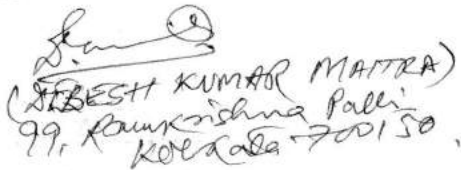 (DEBESH KUMAR MAITRA)
99, Ramkrishna Palli
Kolkata-700150.